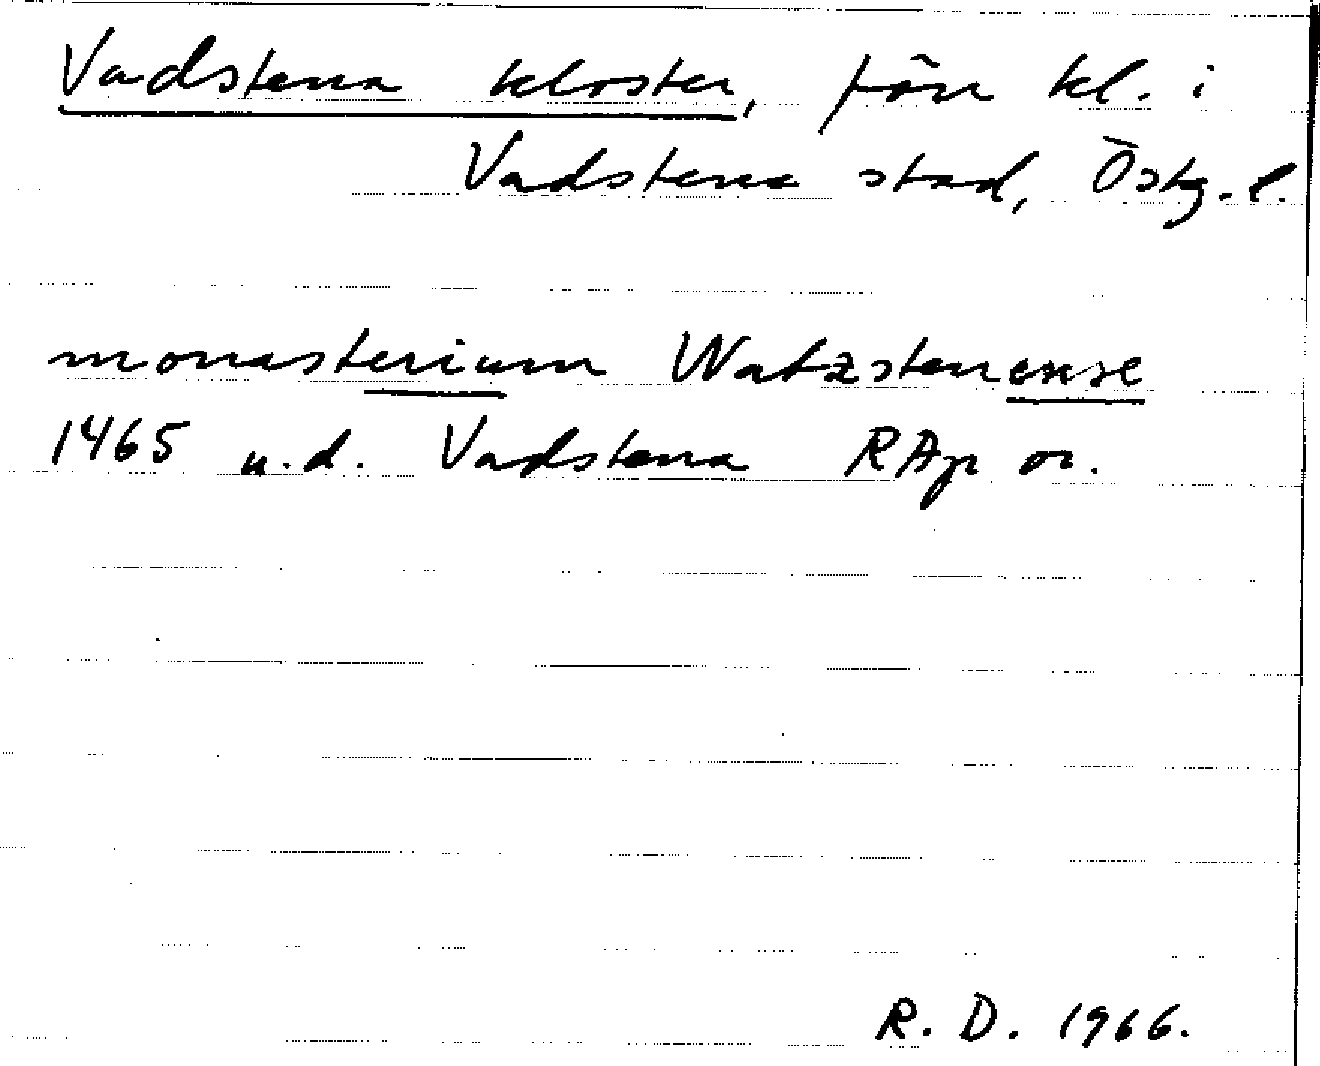 Vadstena kloster, förr kl. i
Vadstena stad, Östg. l.
monasterium Watzstenense
1465 u.d. Vadstena RAp or.
R. D. 1966.